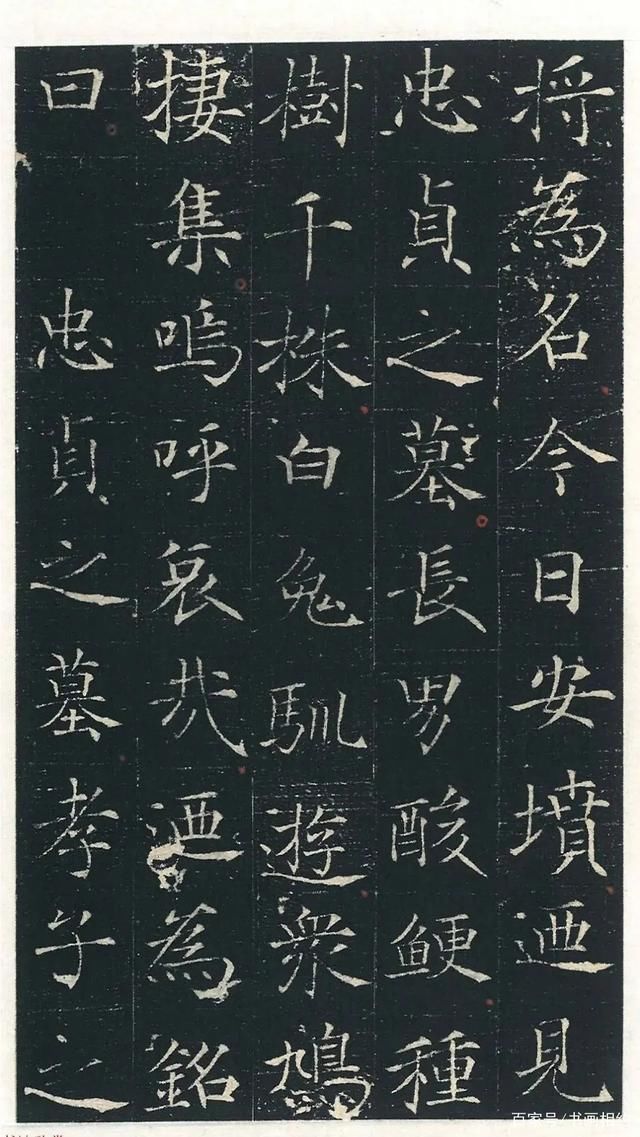 将為名今日安墳迺見
忠貞之墓長男酸鯁種
樹千株白兔馴遊衆鳩
捿集嗚呼哀哉迺為銘
曰 忠貞之墓孝子之
百家号/书画相约